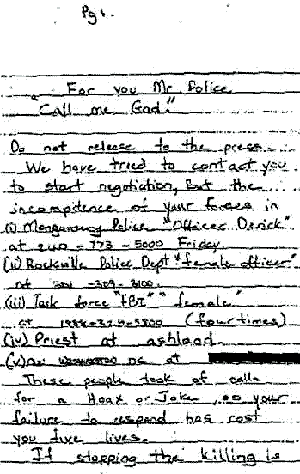 Pg 1.
For you Mr Police
"Call me God."
Do not release to the press.
We have tried to contact you
to start negotiation, But the
incompitence of your forces in
(i) Police "Officer Derick"
at 240-773-5000 Friday
(ii) Rockville Police Dept "female officer"
at
(iii) Task force "FBI" "female"
at (four times)
(iv) Priest at ashland
(v) at
These people took of calls
for a Hoax or Joke, so your
failure to respond has cost
you five lives.
If stopping the killing is